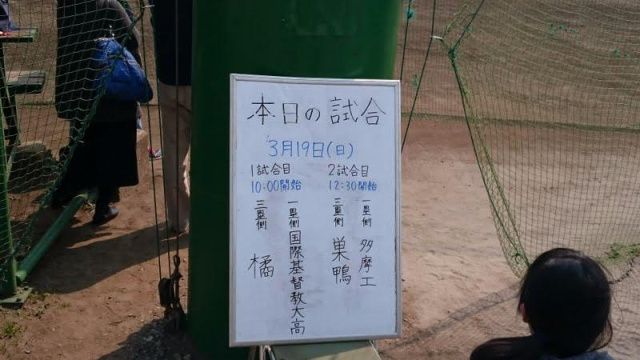 本日の試合
3月19日(日)
1試合目
10:00開始
一塁側 国際基督教大高
三塁側 橘
2試合目
12:30開始
一塁側 多摩工
三塁側 巣鴨